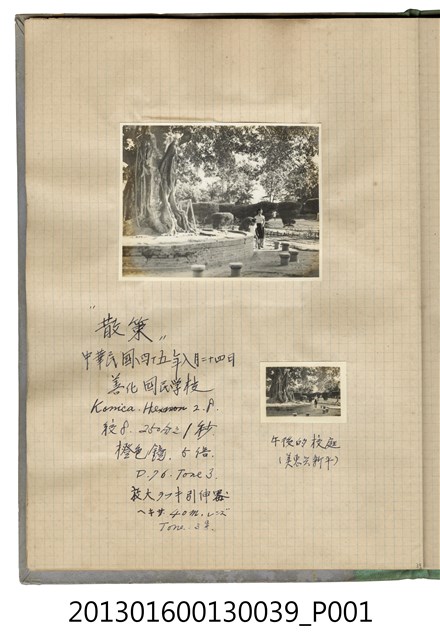 "散策"
中華民國四十五年八月二十四日
善化国民学校
Konica. Hexanon 2.8.
絞8. 250分之1秒
橙色鏡. 5倍.
D.76. Tone 3.
ヘキサ. 40m. レンズ
Tone.
午後的校庭
201301600130039_P001